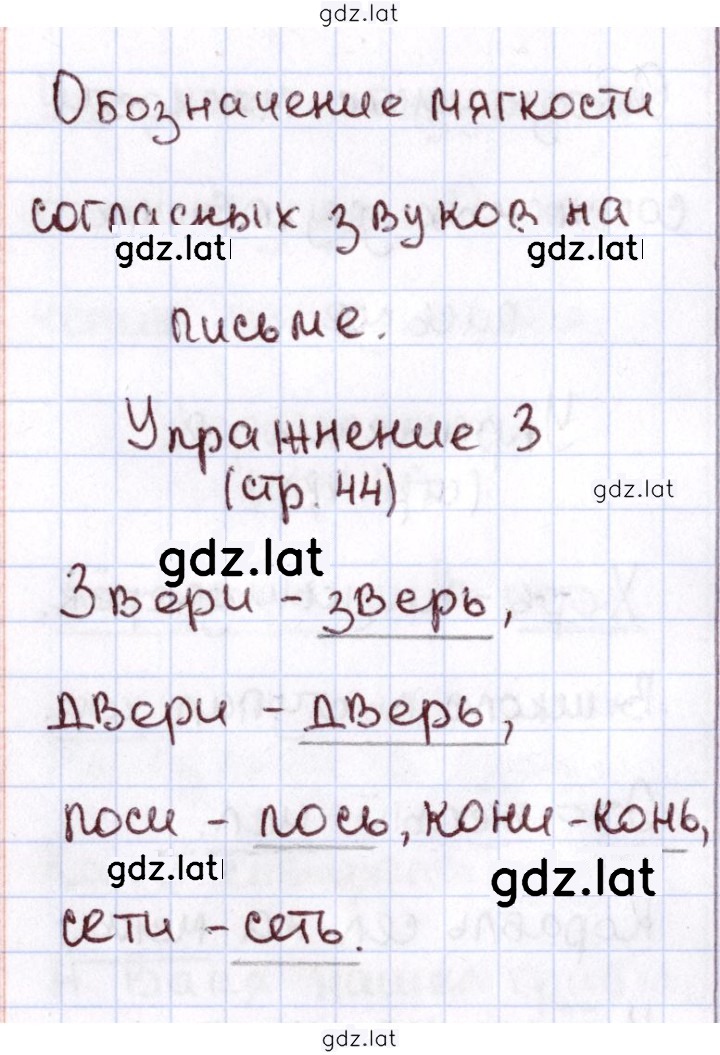 gdz.lat
Обозначение мягкости
согласных звуков на
gdz.lat gdz.lat
письме.
Упражнение 3
(стр. 44)
gdz.lat
gdz.lat
Звери - зверь,
двери - дверь,
лоси - лось, кони - конь,
gdz.lat gdz.lat
сети - сеть.
gdz.lat